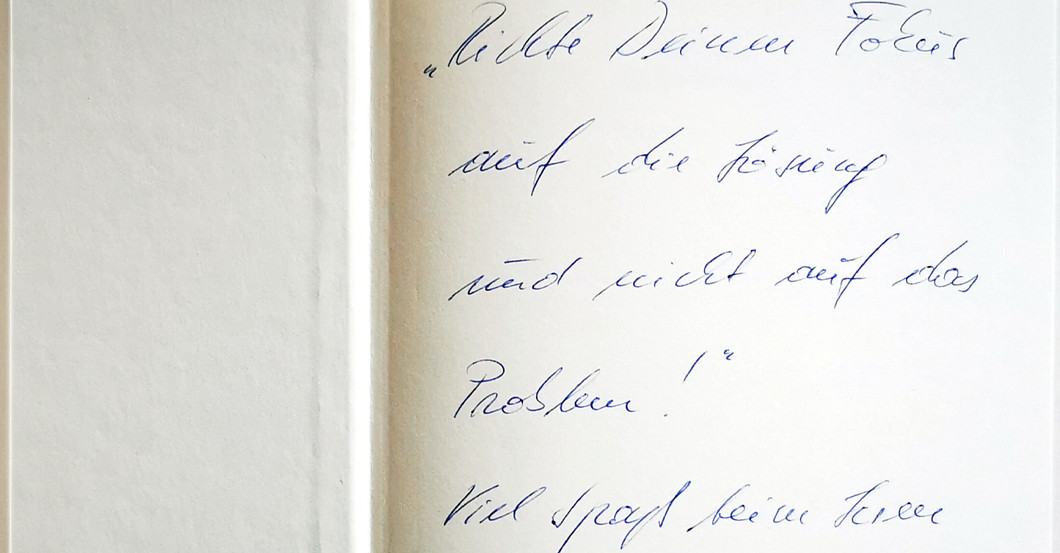 „Richte Deinen Fokus
auf die Lösung
und nicht auf das
Problem!“
Viel Spaß beim Lesen